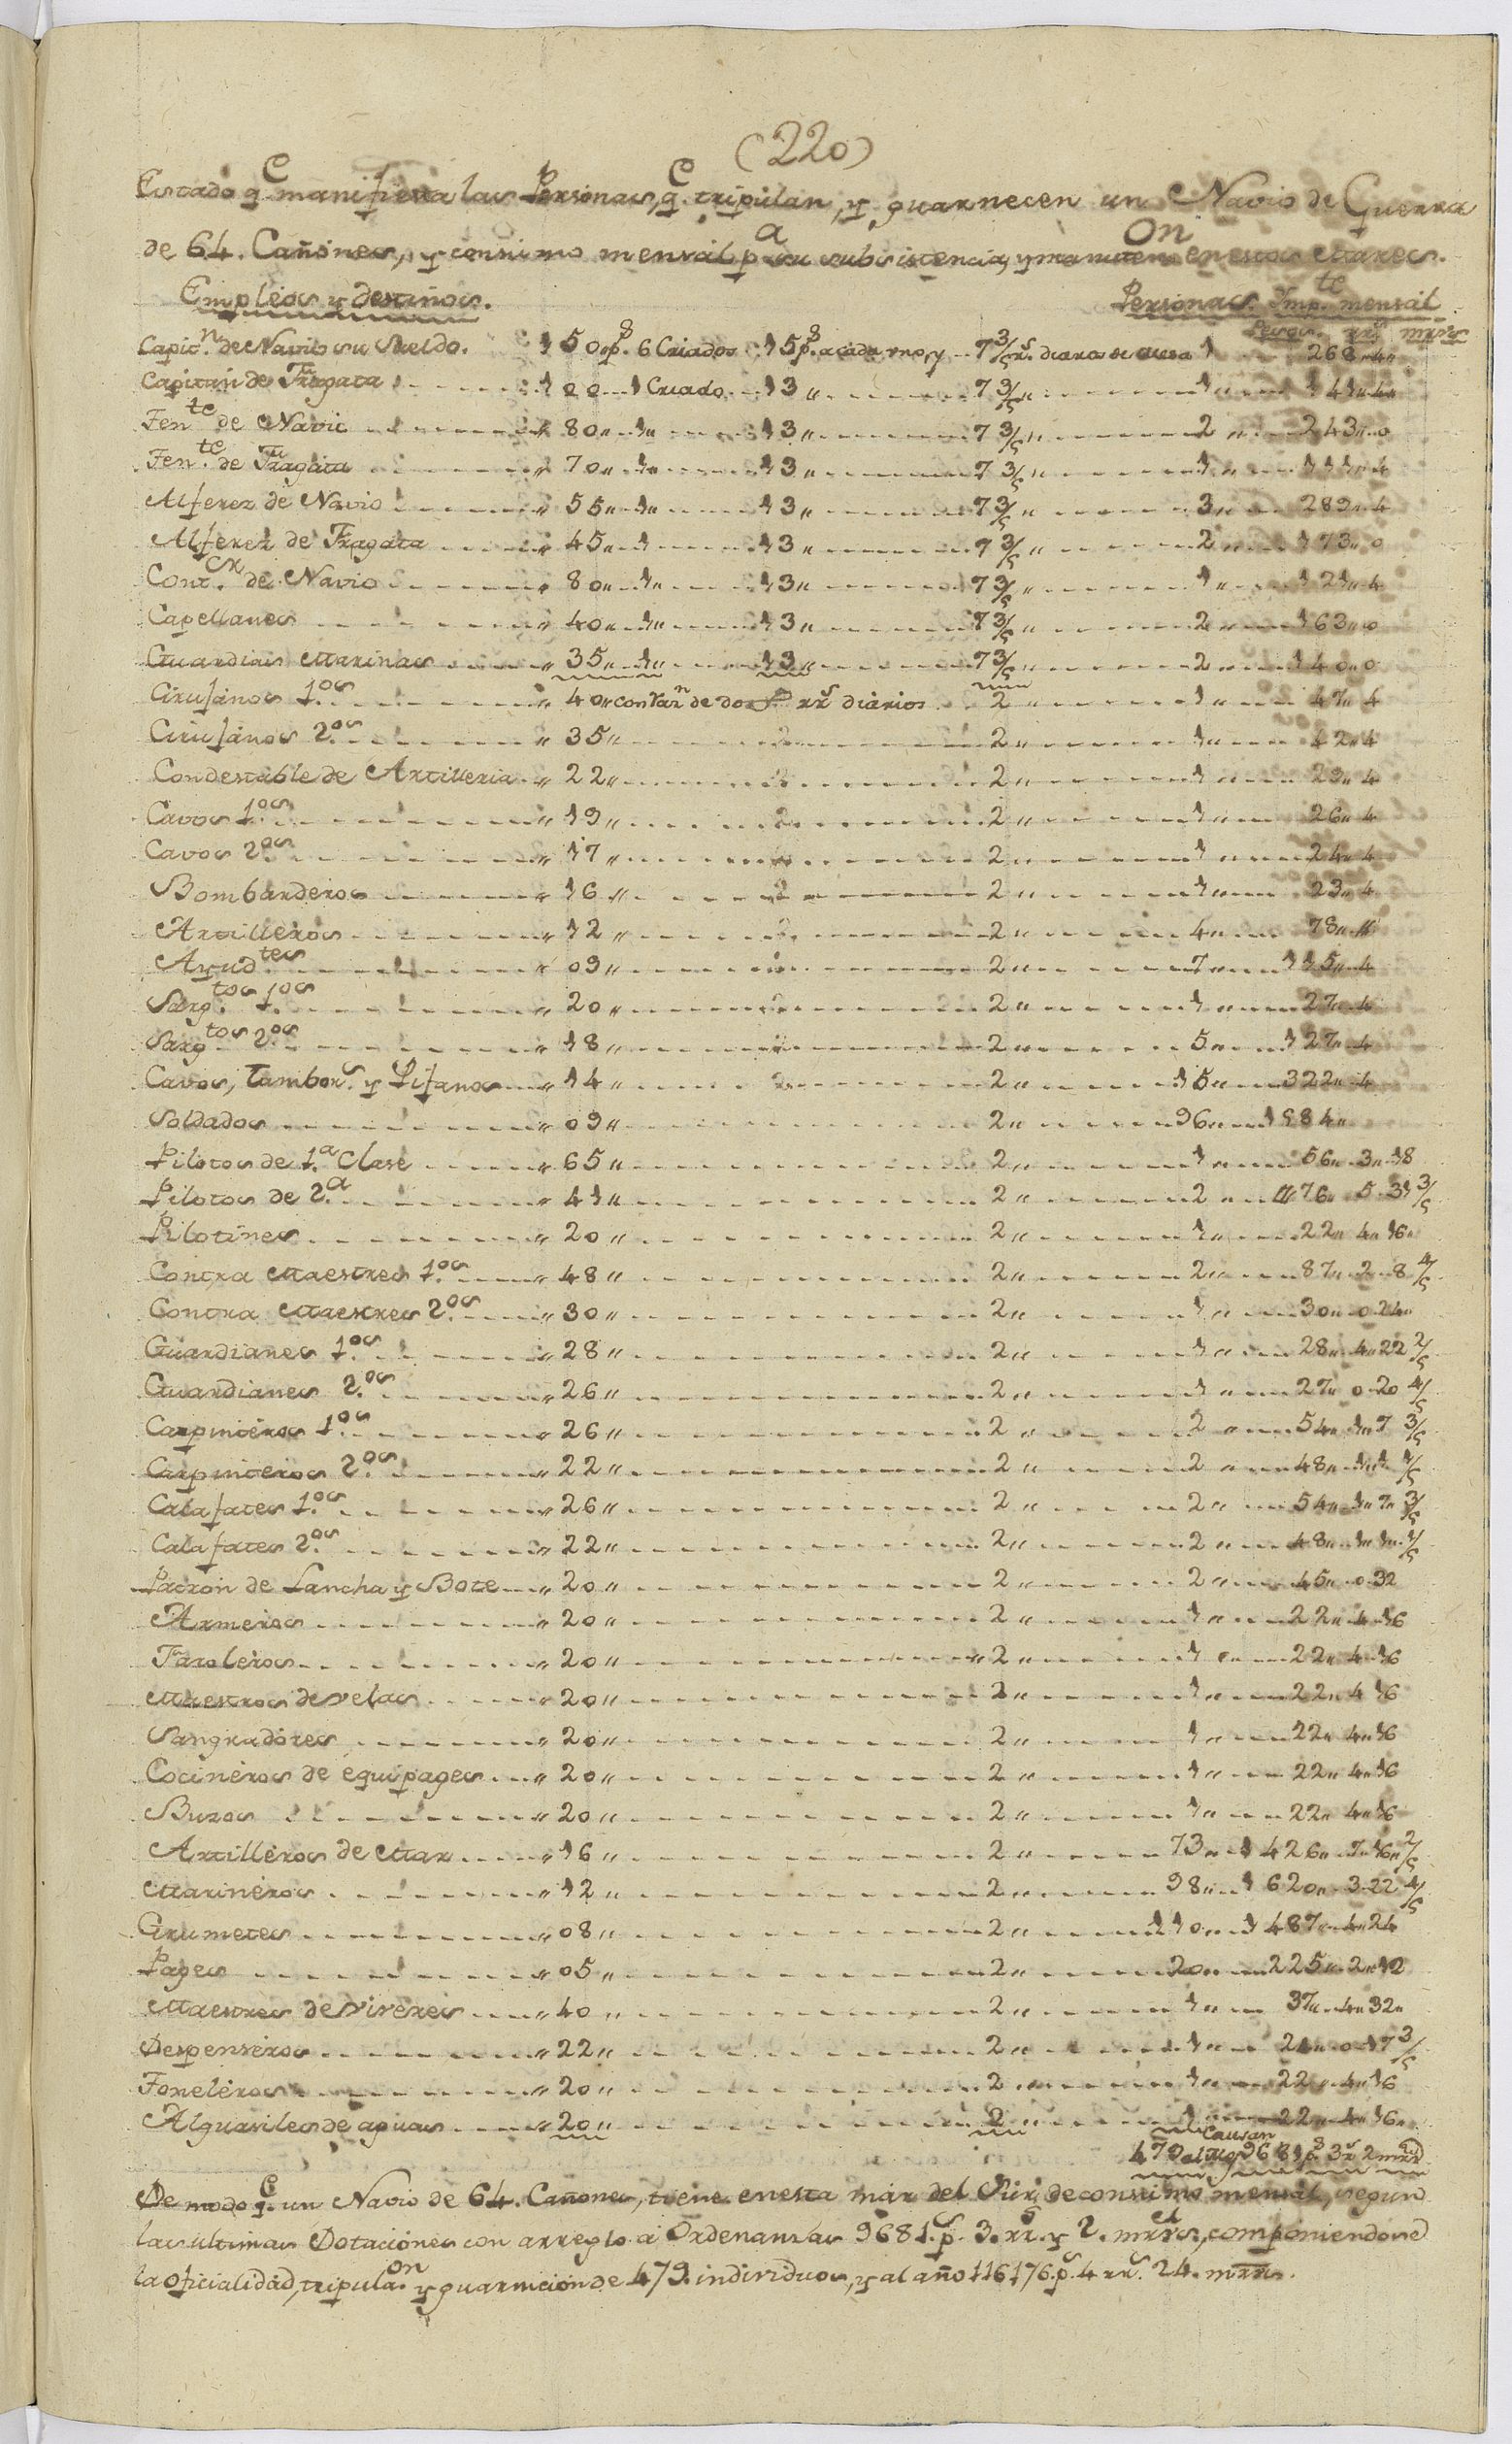 (220)
Estado q.e manifiesta las Personas, q.e tripulan, y guarnecen un Navio de Guerra
de 64. Cañones, y consumo mensál p.a su subsistencia, y manuten.on en estos Mares.
Empléos y destinos. Personas. Ymp.te mensál
Pesos. rr.s mrvs
Capit.n de Navio su Sueldo. 150 p.s 6 Criados 15 p.s a cada uno, y 7 3/5 rr.s diarios de mesa 1 268,, 4,,
Capitán de Fragata 100 1 Criado 13,, 7 3/5,, 1,, 141,, 4,,
Ten.te de Navio ,, 80,, 1,, 13,, 7 3/5,, 2,, 243,, 0
Ten.te de Fragata ,, 70,, 1,, 13,, 7 3/5,, 1,, 111,, 4
Alferez de Navio ,, 55,, 1,, 13,, 7 3/5,, 3,, 289,, 4
Alferez de Fragata ,, 45,, 1,, 13,, 7 3/5,, 2,, 173,, 0
Cont.or de Navio ,, 80,, 1,, 13,, 7 3/5,, 1,, 121,, 4
Capellanes ,, 40,, 1,, 13,, 7 3/5,, 2,, 163,, 0
Guardias Marinas ,, 35,, 1,, 13,, 7 3/5,, 2,, 140,, 0
Cirujanos 1.os ,, 40,, con raz.n de dos rr.s diários 2 1,, 47,, 4
Cirujános 2.os ,, 35,, 2,, 1,, 42,, 4
Condestable de Artilleria ,, 22,, 2,, 1,, 29,, 4
Cavos 1.os ,, 19,, 2,, 1,, 26,, 4
Cavos 2.os ,, 17,, 2,, 1,, 24,, 4
Bombarderos ,, 16,, 2,, 1,, 23,, 4
Artilléros ,, 12,, 2,, 4,, 78,, ,,
Ayud.tes ,, 09,, 2,, 7,, 115,, 4
Sarg.tos 1.os ,, 20,, 2,, 1,, 27,, 4
Sarg.tos 2.os ,, 18,, 2,, 5,, 127,, 4
Cavos, Tambor.s y Pifanos ,, 14,, 2,, 15,, 322,, 4
Soldados ,, 09,, 2,, 96,, 1584,,
Pilotos de 1.a Clase ,, 65,, 2,, 1,, 56,, 3,, 18
Pilotos de 2.a ,, 41,, 2,, 2,, 76,, 5 31 3/5
Pilotines ,, 20,, 2,, 1,, 22,, 4,, 16,,
Contra Maestres 1.os ,, 48,, 2,, 2,, 87,, 2 8 4/5
Contra Maestres 2.os ,, 30,, 2,, 1,, 30,, 0 24,,
Guardianes 1.os ,, 28,, 2,, 1,, 28,, 4,, 22 2/5
Guardianes 2.os ,, 26,, 2,, 1,, 27,, 0 20 4/5
Carpintéros 1.os ,, 26,, 2,, 2,, 54,, 1,, 7 3/5
Carpinteros 2.os ,, 22,, 2,, 2,, 48,, 1,, 1,, 1/5
Calafates 1.os ,, 26,, 2,, 2,, 54,, 1,, 7,, 3/5
Calafates 2.os ,, 22,, 2,, 2,, 48,, 1,, 1,, 1/5
Patron de Lancha y Bote ,, 20,, 2,, 2,, 45,, 0 32
Armeros ,, 20,, 2,, 1,, 22,, 4 16
Faroleros ,, 20,, 2,, 1,, 22,, 4 16
Maestros de velas ,, 20,, 2,, 1,, 22,, 4 16
Sangradóres ,, 20,, 2,, 1,, 22,, 4,, 16
Cocinéros de équipages ,, 20,, 2,, 1,, 22,, 4,, 16
Buzos ,, 20,, 2,, 1,, 22,, 4,, 16
Artilléros de Mar ,, 16,, 2,, 73,, 1426,, 7,, 16,, 2/5
Marinéros ,, 12,, 2,, 98,, 1620,, 3 22 4/5
Grumetes ,, 08,, 2,, 110,, 1487,, 4,, 24
Pages ,, 05,, 2,, 20,, 225,, 2,, 12
Maestres de Vivéres ,, 40,, 2,, 1,, 37,, 4,, 32,,
Despenséros ,, 22,, 2,, 1,, 24,, 0 17 3/5
Toneléros ,, 20,, 2,, 1,, 22,, 4,, 16
Alguaciles de aguas ,, 20,, 2,, 1,, 22,, 4,, 16,,
Causan
479 al mes 9681 p.s 3 r.s 2 mrs
De modo q.e un Navio de 64. Cañones, tiene en esta mar del Sur, de consumo mensál, segun
las ultimas Dotaciónes con arreglo a Ordenanzas 9681. p.s 3. rr.s y 2. mrvs., componiendose
la oficialidad, tripula.on y guarnición de 479. individuos, y al año 116176. p.s 4 rr.s 24. mrs.